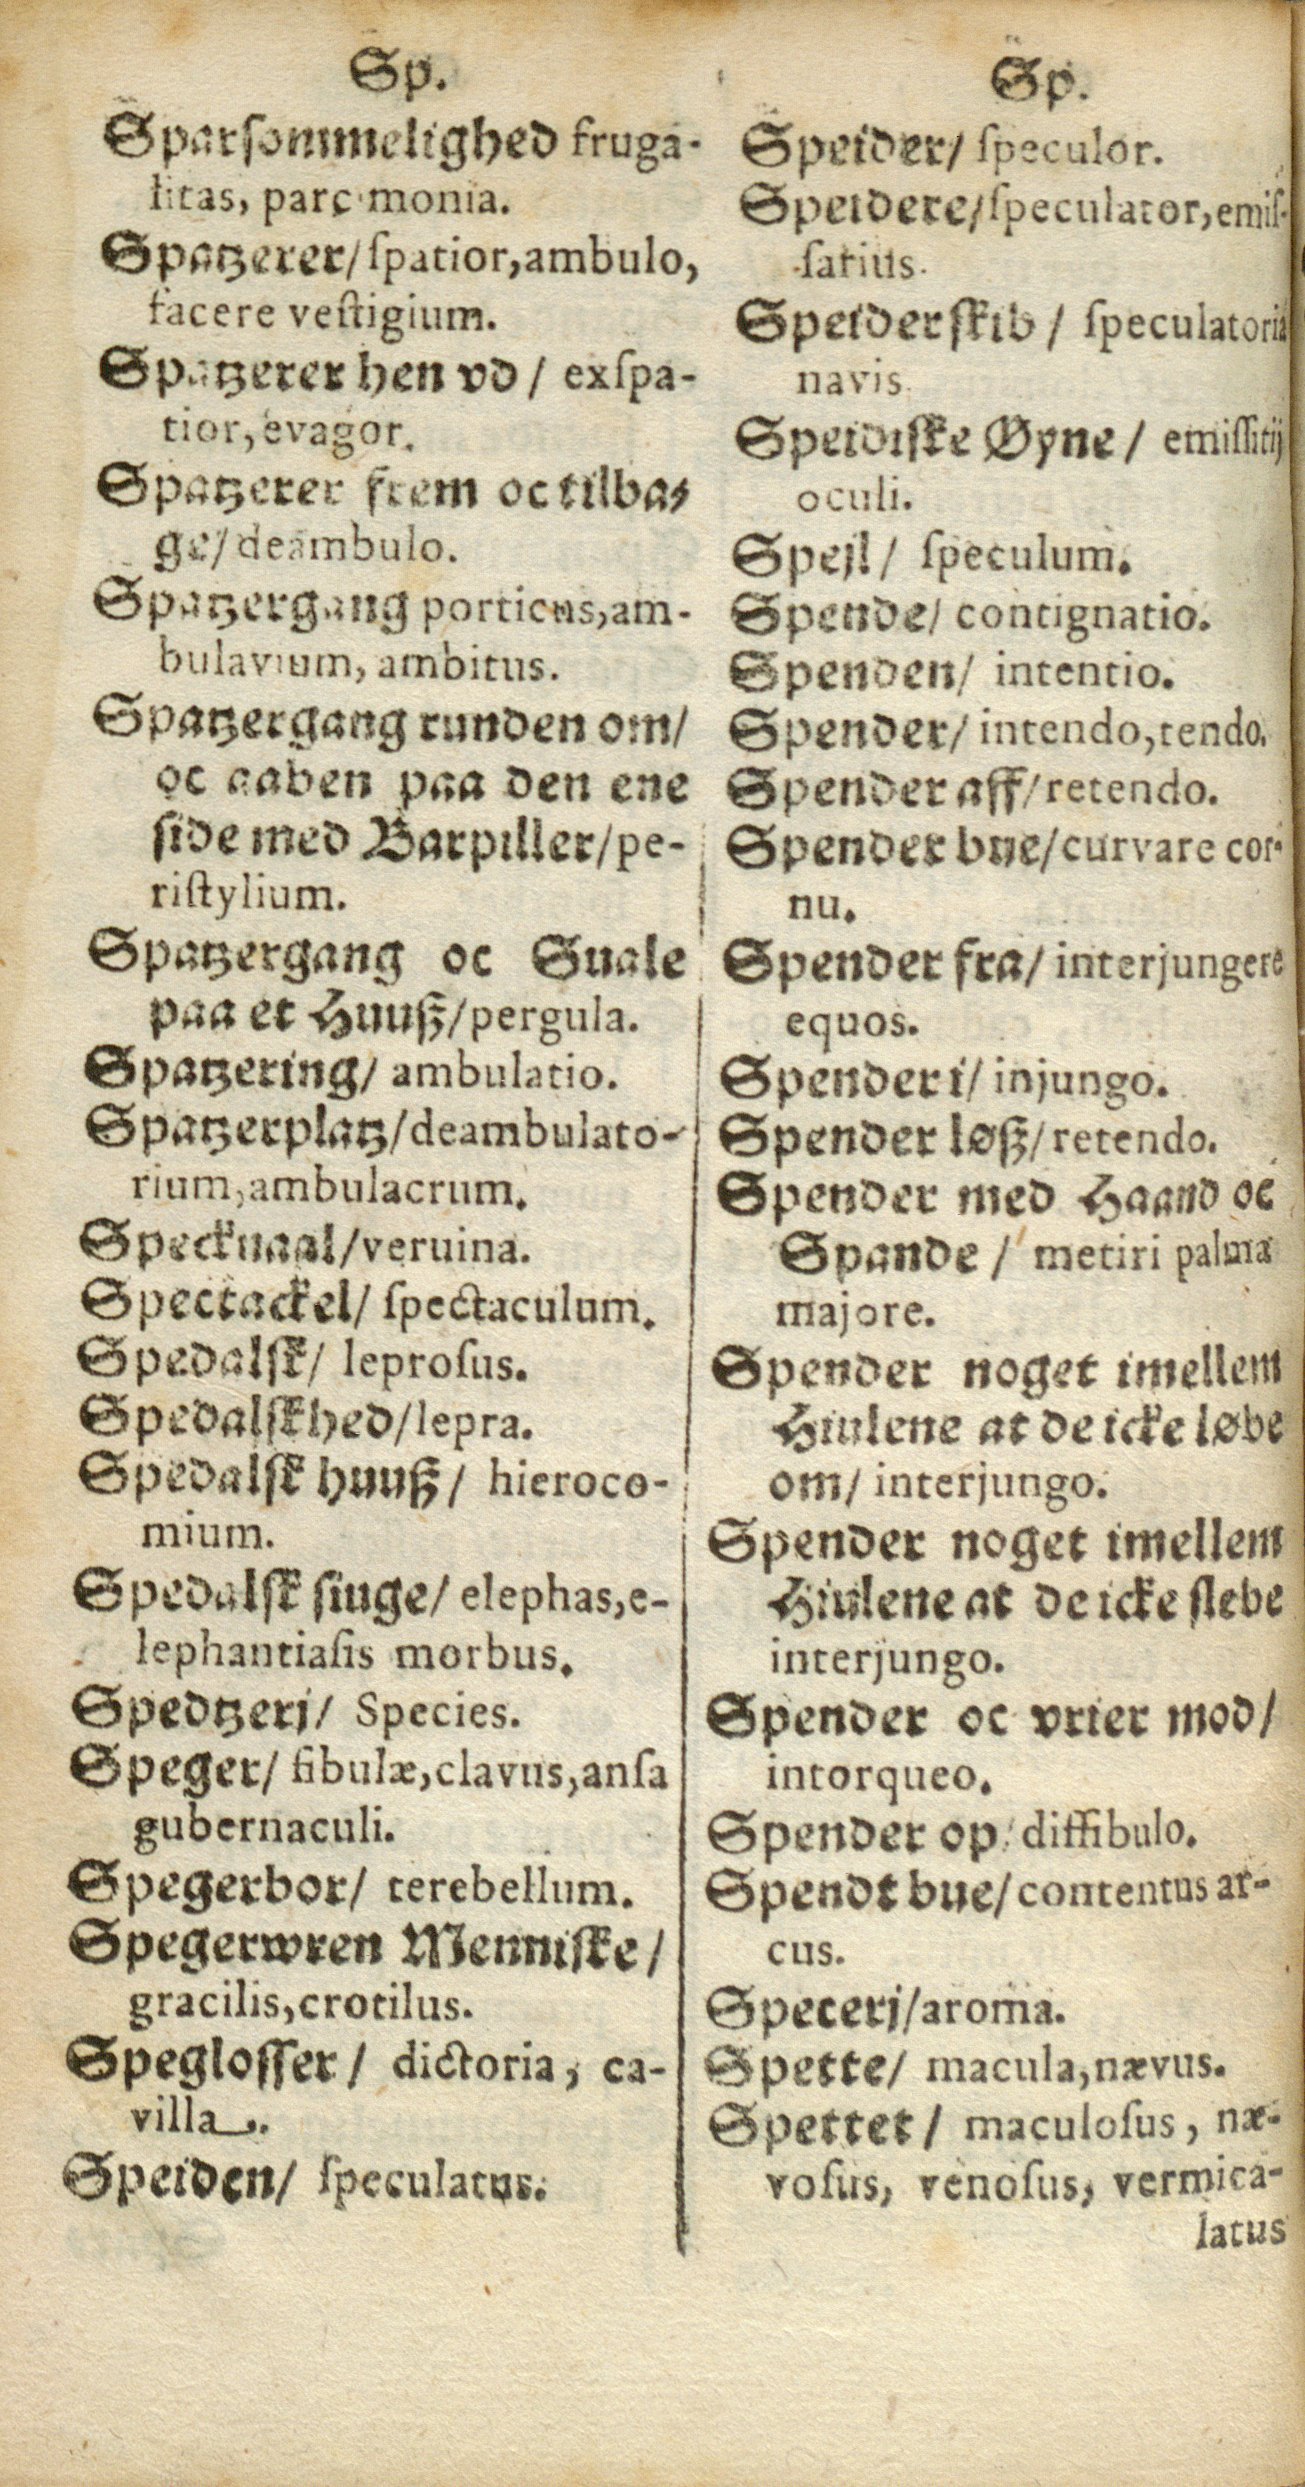 Sp.
Sparſommelighed fruga-
litas, parcimonia.
Spatzerer/ ſpatior, ambulo,
facere veſtigium.
Spatzerer hen vd / exſpa-
tior, evagor.
Spatzerer frem oc tilba-
ge/ deambulo.
Spatzergang porticus, am-
bulavium, ambitus.
Spatzergang runden om/
oc aaben paa den ene
ſide med Barpiller/ pe-
riſtylium.
Spatzergang oc Suale
paa et Huuß/ pergula.
Spatzering/ ambulatio.
Spatzerplatz/ deambulato-
rium, ambulacrum.
Specknaal/ veruina.
Spectackel/ ſpectaculum.
Spedalſk/ leproſus.
Spedalſkhed/ lepra.
Spedalſk huuß/ hieroco-
mium.
Spedalſk ſiuge/ elephas, e-
lephantiaſis morbus.
Spedtzerj/ Species.
Speger/ fibulæ, clavus, anſa
gubernaculi.
Spegerbor/ terebellum.
Spegerwren Menniſke/
gracilis, crotilus.
Spegloſſer/ dictoria, ca-
villa.
Speiden/ ſpeculatus.
Sp.
Speider/ ſpeculor.
Speidere/ ſpeculator, emiſ-
ſarius.
Speiderſkib / ſpeculatoria
navis.
Speidiſke Øyne / emiſſitij
oculi.
Spejl/ ſpeculum.
Spende/ contignatio.
Spenden/ intentio.
Spender/ intendo, tendo.
Spender aff/ retendo.
Spender bue/ curvare cor-
nu.
Spender fra/ interjungere
equos.
Spender i/ injungo.
Spender løß/ retendo.
Spender med Haand oc
Spande / metiri palma
majore.
Spender noget imellem
Hiulene at de icke løbe
om/ interjungo.
Spender noget imellem
Hiulene at de icke ſlebe
interjungo.
Spender oc vrier mod/
intorqueo.
Spender op/ diffibulo.
Spendt bue/ contentus ar-
cus.
Specerj/ aroma.
Spette/ macula, nævus.
Spettet/ maculoſus, næ-
voſus, venoſus, vermica-
latus